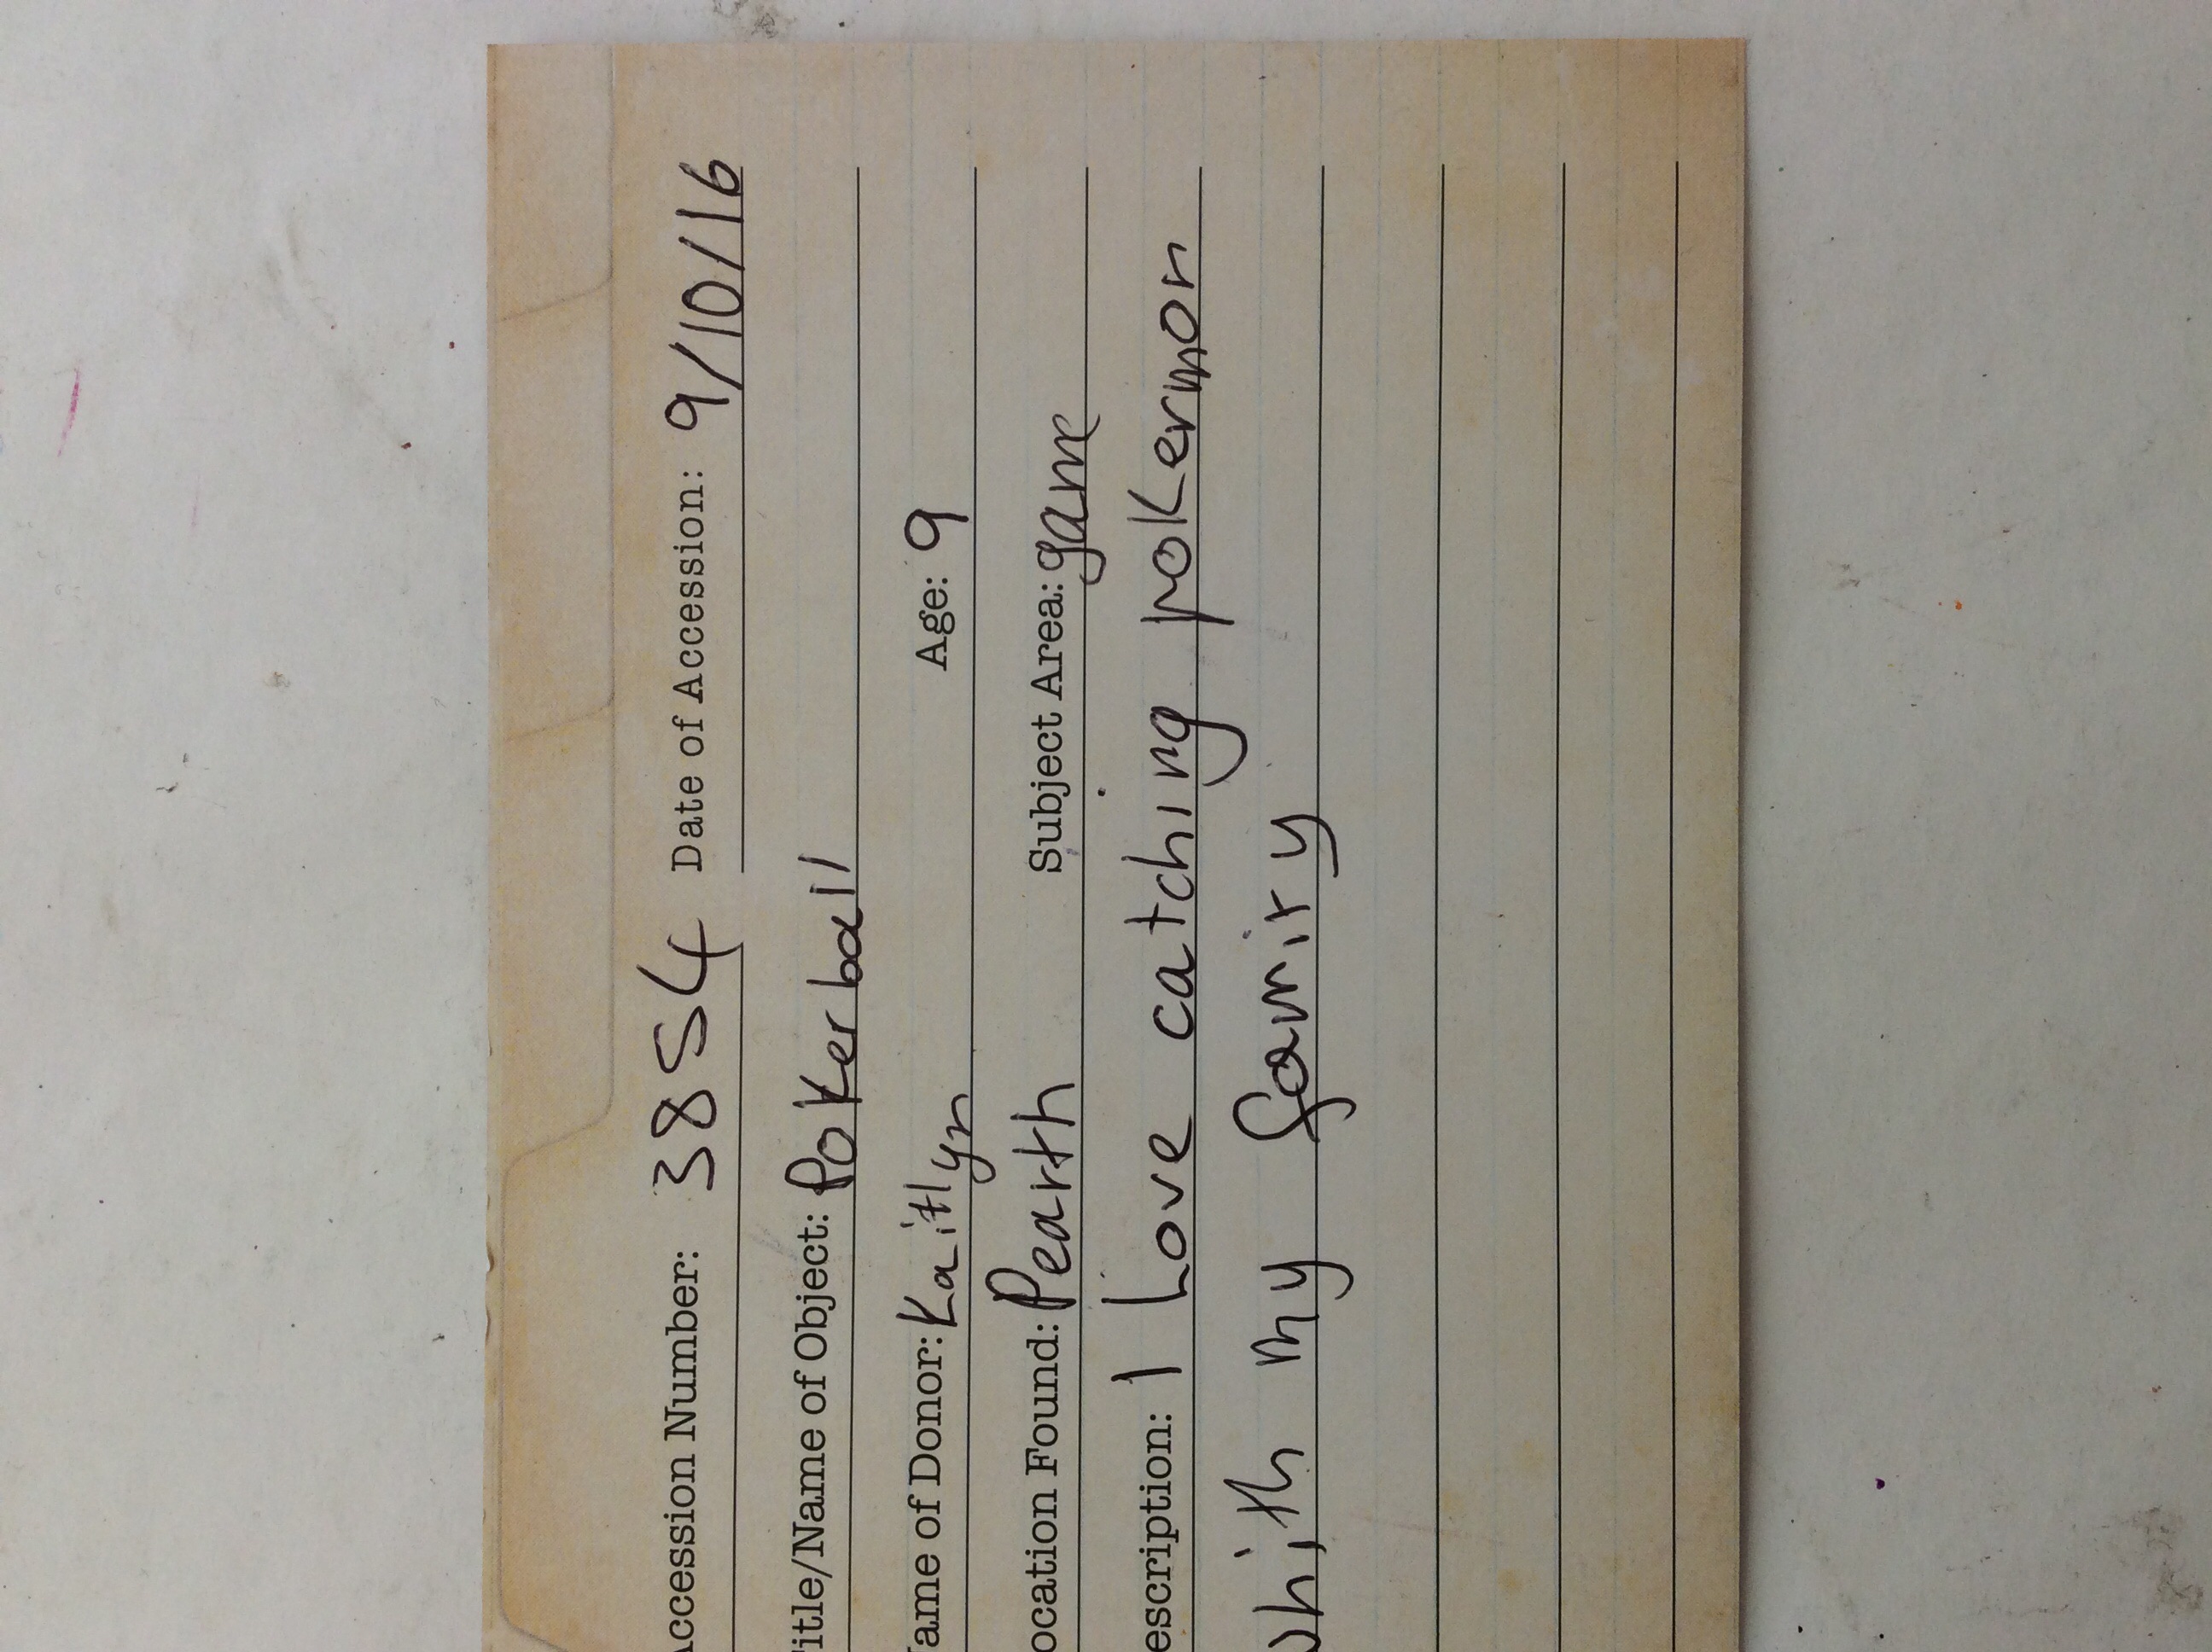 ccession Number: 3854 Date of Accession: 9/10/16
itle/Name of Object: Pokerball
ame of Donor: Kaitlyn Age: 9
ocation Found: Pearth Subject Area: game
escription: I Love catching pokermon
whith my famiry